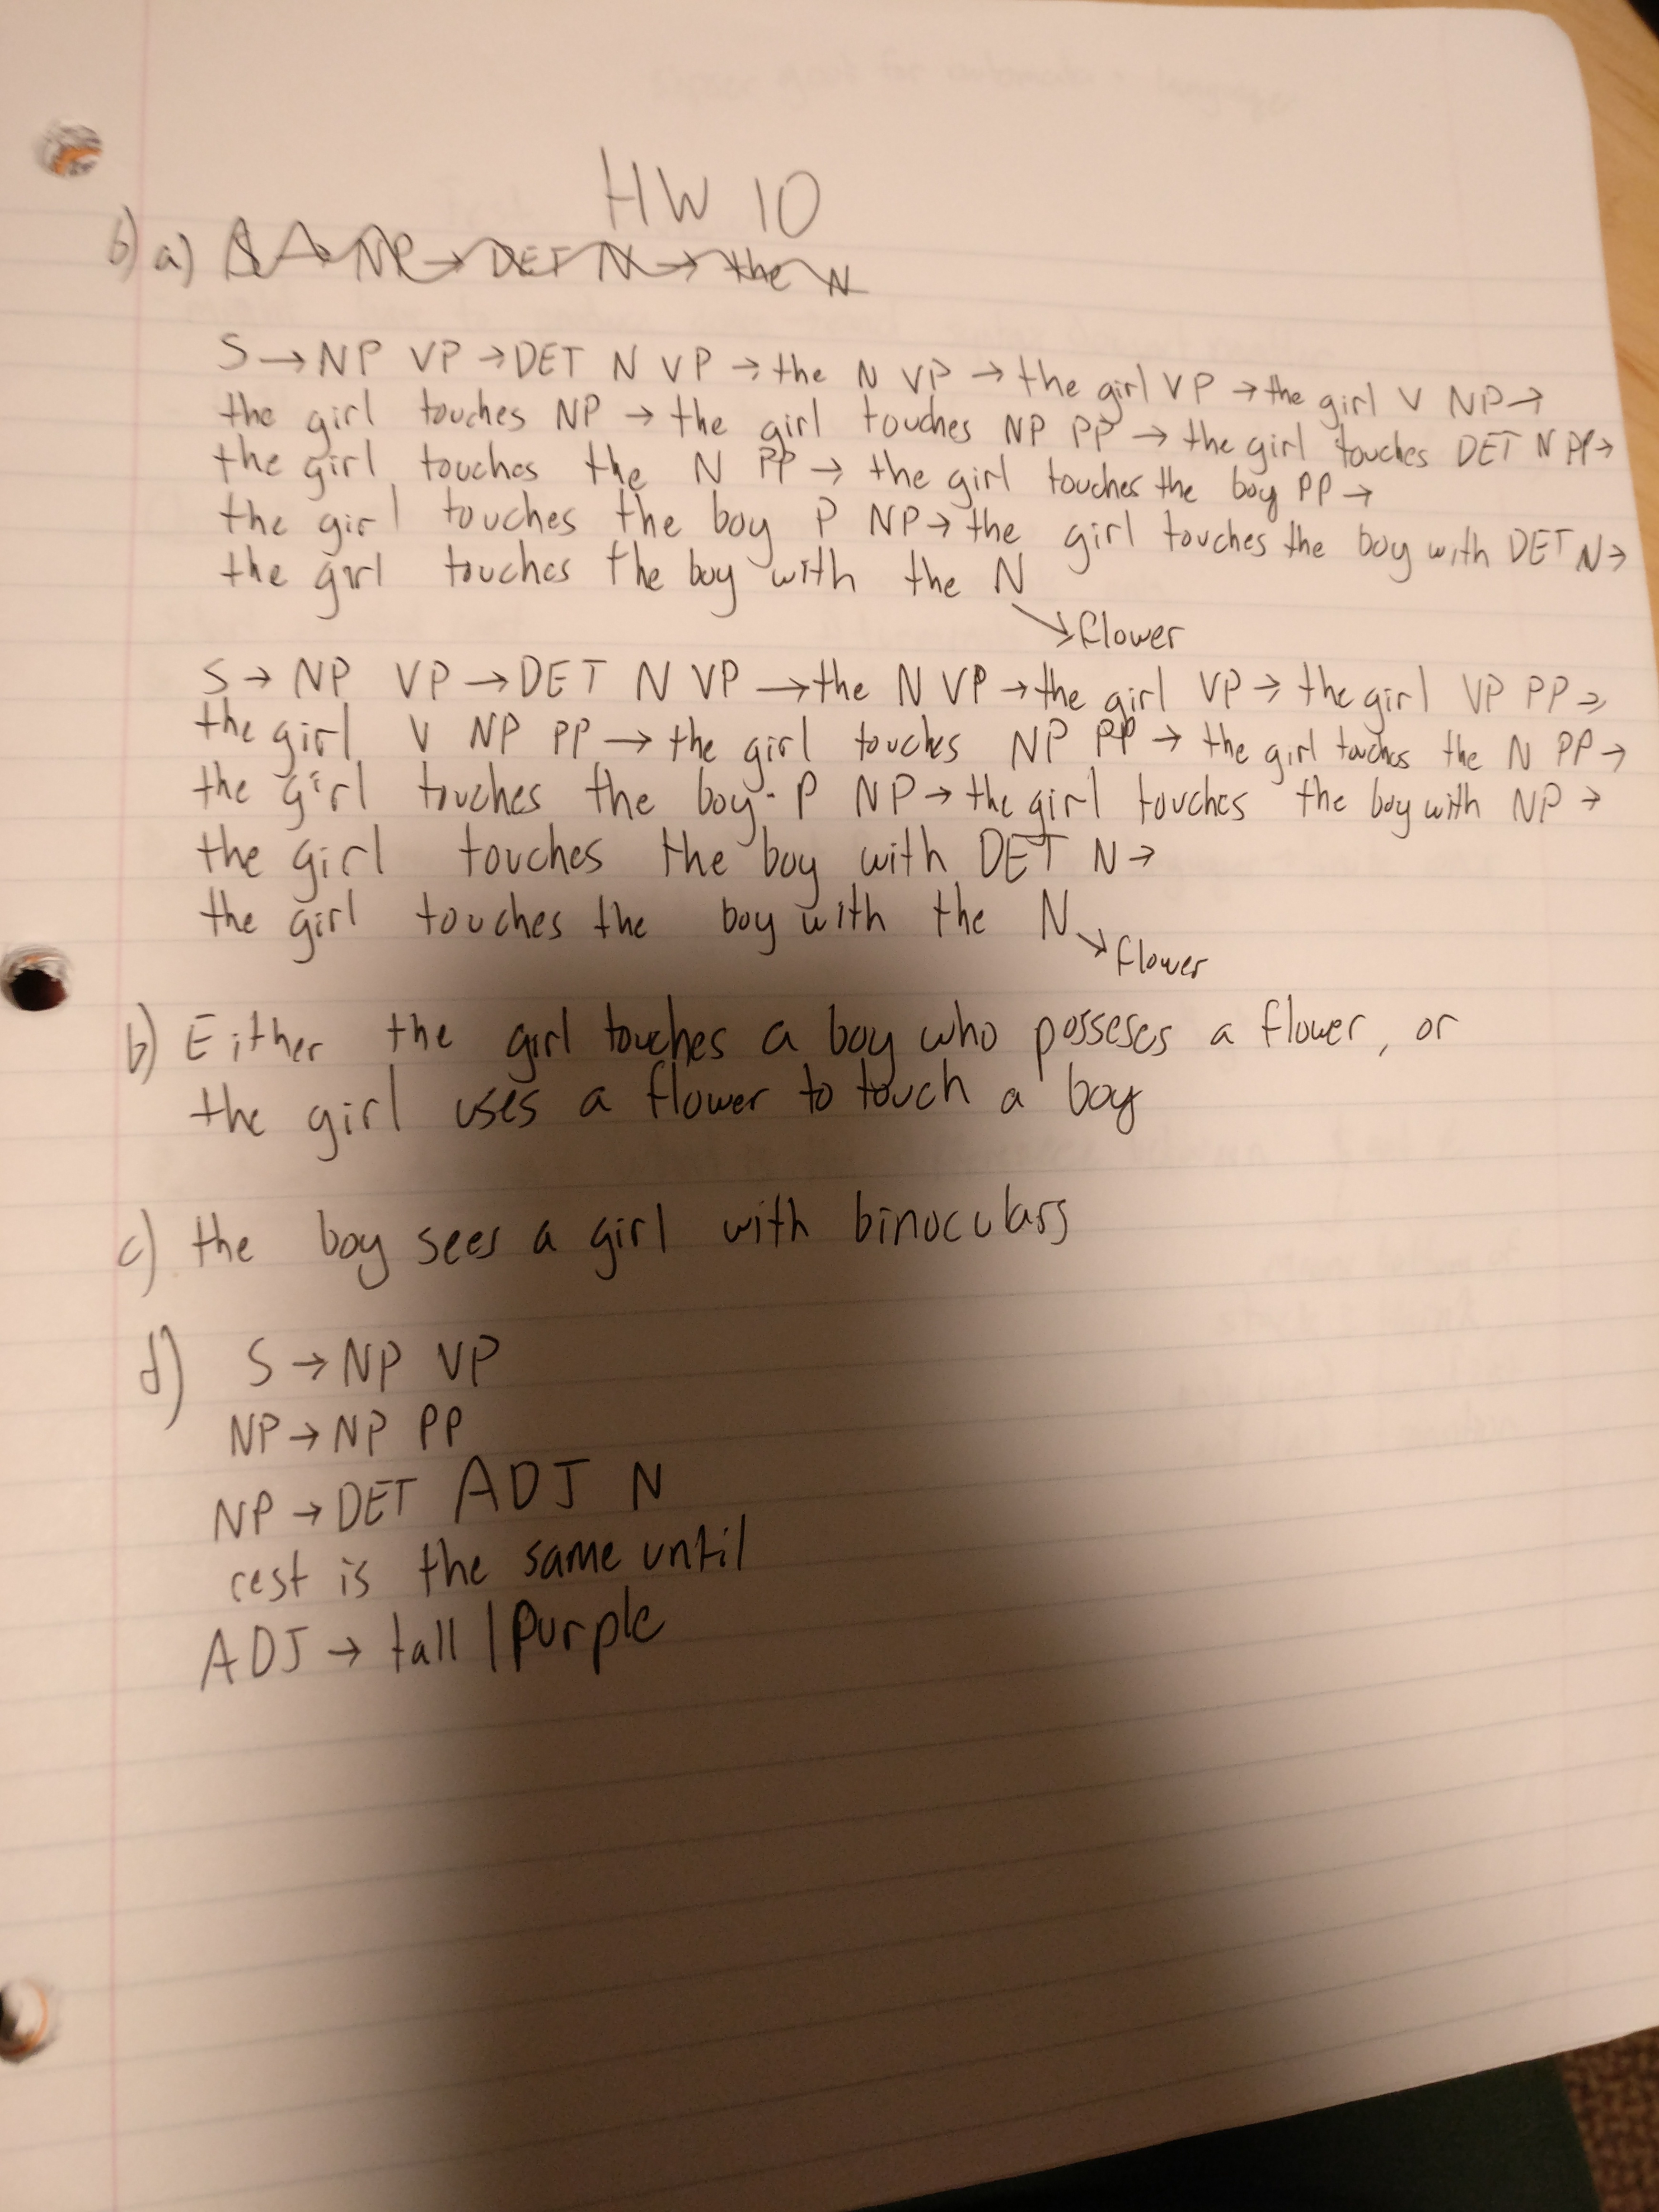 HW 10
6) a) S → NP → DET N → the N
S → NP VP → DET N VP → the N VP → the girl VP → the girl V NP →
the girl touches NP → the girl touches NP PP → the girl touches DET N PP →
the girl touches the N PP → the girl touches the boy PP →
the girl touches the boy P NP → the girl touches the boy with DET N →
the girl touches the boy with the N
↘ flower
S → NP VP → DET N VP → the N VP → the girl VP → the girl VP PP →
the girl V NP PP → the girl touches NP PP → the girl touches the N PP →
the girl touches the boy P NP → the girl touches the boy with NP →
the girl touches the boy with DET N →
the girl touches the boy with the N
↘ flower
b) Either the girl touches a boy who posseses a flower, or
the girl uses a flower to touch a boy
c) the boy sees a girl with binoculars
d) S → NP VP
NP → NP PP
NP → DET ADJ N
rest is the same until
ADJ → tall | purple